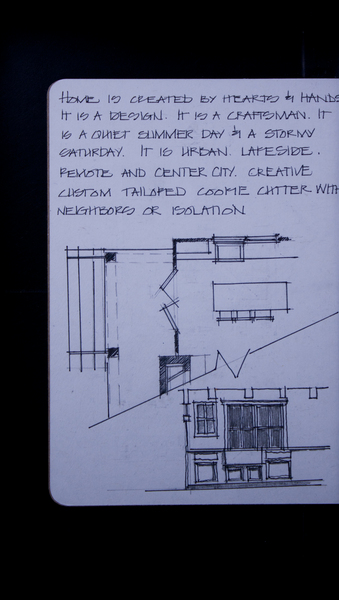 HOME IS CREATED BY HEARTS & HANDS
IT IS A DESIGN. IT IS A CRAFTSMAN. IT
IS A QUIET SUMMER DAY & A STORMY
SATURDAY. IT IS URBAN. LAKESIDE.
REMOTE AND CENTER CITY. CREATIVE
CUSTOM TAILORED COOKIE CUTTER WITH
NEIGHBORS OR ISOLATION